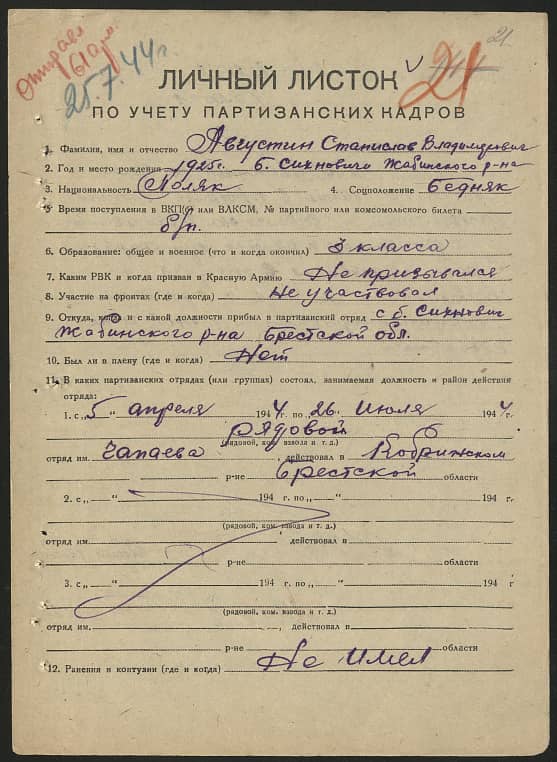 21.
Отправл
61 арм.
25.7.44 г.
21
ЛИЧНЫЙ ЛИСТОК
ПО УЧЕТУ ПАРТИЗАНСКИХ КАДРОВ
1. Фамилия, имя и отчество Августин Станислав Владимирович
2. Год и место рождения 1925 г. б. Сихновичи Жабинского р-на
3. Национальность Поляк 4. Соцположение Бедняк
5. Время поступления в ВКП(б) или ВЛКСМ, № партийного или комсомольского билета
б/п.
6. Образование: общее и военное (что и когда окончил) 3 класса
7. Каким РВК и когда призван в Красную Армию Не призывался
8. Участие на фронтах (где и когда) Не участвовал
9. Откуда, когда и с какой должности прибыл в партизанский отряд с б. Сихнович
Жабинского р-на Брестской обл.
10. Был ли в плену (где и когда) Нет
11. В каких партизанских отрядах (или группах) состоял, занимаемая должность и район действия
отряда:
1. с „5" апреля 1944 г. по „26 июля 1944 г.
рядовой
(рядовой, ком. взвода и т. д.)
отряд им. Чапаева, действовал в Кобринском
р-не Брестской области
2. с „ " 194 г. по „ " 194 г.
(рядовой, ком. взвода и т. д.)
отряд им. , действовал в
р-не области
3. с „ " 194 г. по „ " 194 г.
(рядовой, ком. взвода и т. д.)
отряд им. , действовал в
р-не области
12. Ранения и контузии (где и когда) Не имел